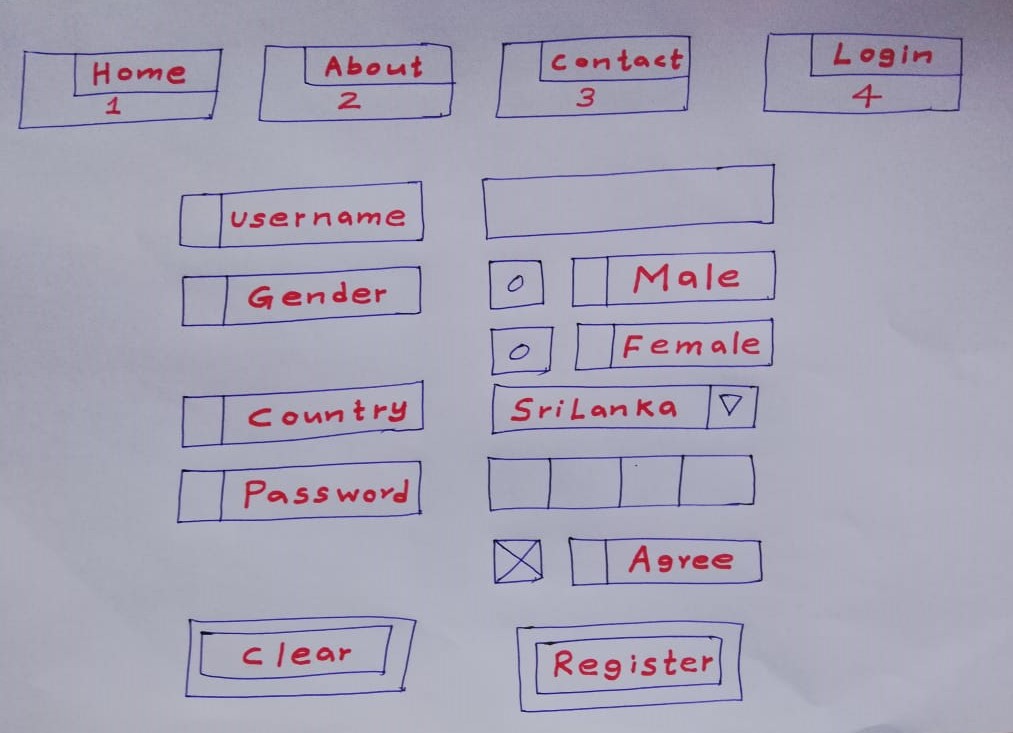 Home About Contact Login
1 2 3 4
Username
Gender Male
Female
Country SriLanka
Password
Agree
Clear Register